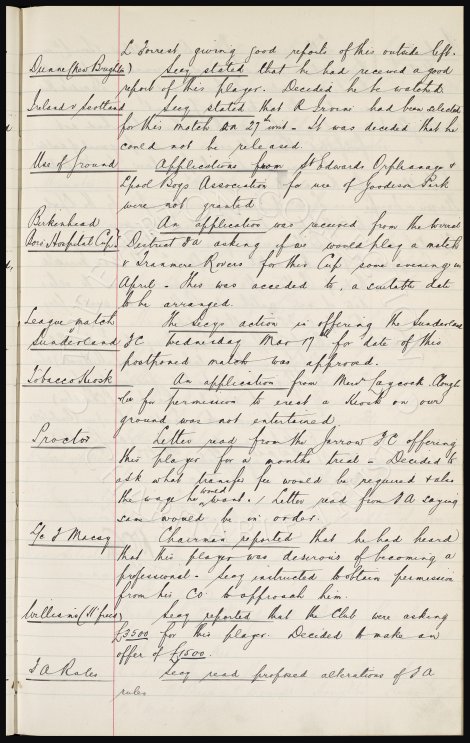 L Forrest, giving good reports of this outside left.
Dunne (New Brighton) Secy stated that he had received a good
report of this player. Decided he be watched.
Ireland v Scotland Secy stated that R Irvine had been selected
for this match on 27th inst - It was decided that he
could not be released.
Use of Ground Applications from St Edwards Orphanage &
Lpool Boys Association for use of Goodison Park
were not granted
Birkenhead An application was received from the Wirral
Boro' Hospital Cup District FA asking if we would play a match
v Tranmere Rovers for this Cup some evening in
April - This was acceded to, a suitable date
to be arranged.
League match The Secys action in offering the Sunderland
Sunderland FC Wednesday Mar 17th for date of this
postponed match was approved.
Tobacco Kiosk An application from Messrs Laycock Clough
& Co for permission to erect a Kiosk on our
ground was not entertained
Proctor Letter read from the Jarrow FC offering
this player for a months trial - Decided to
ask what transfer fee would be required & also
the wage he would want. / Letter read from FA saying
same would be in order.
L/c J Macay Chairman reported that he had heard
that this player was desirous of becoming a
professional - Secy instructed to obtain permission
from his CO to approach him.
Williams Secy reported that the Club were asking
£3500 for this player. Decided to make an
offer of £1500.
FA Rules Secy read proposed alterations of FA
rules